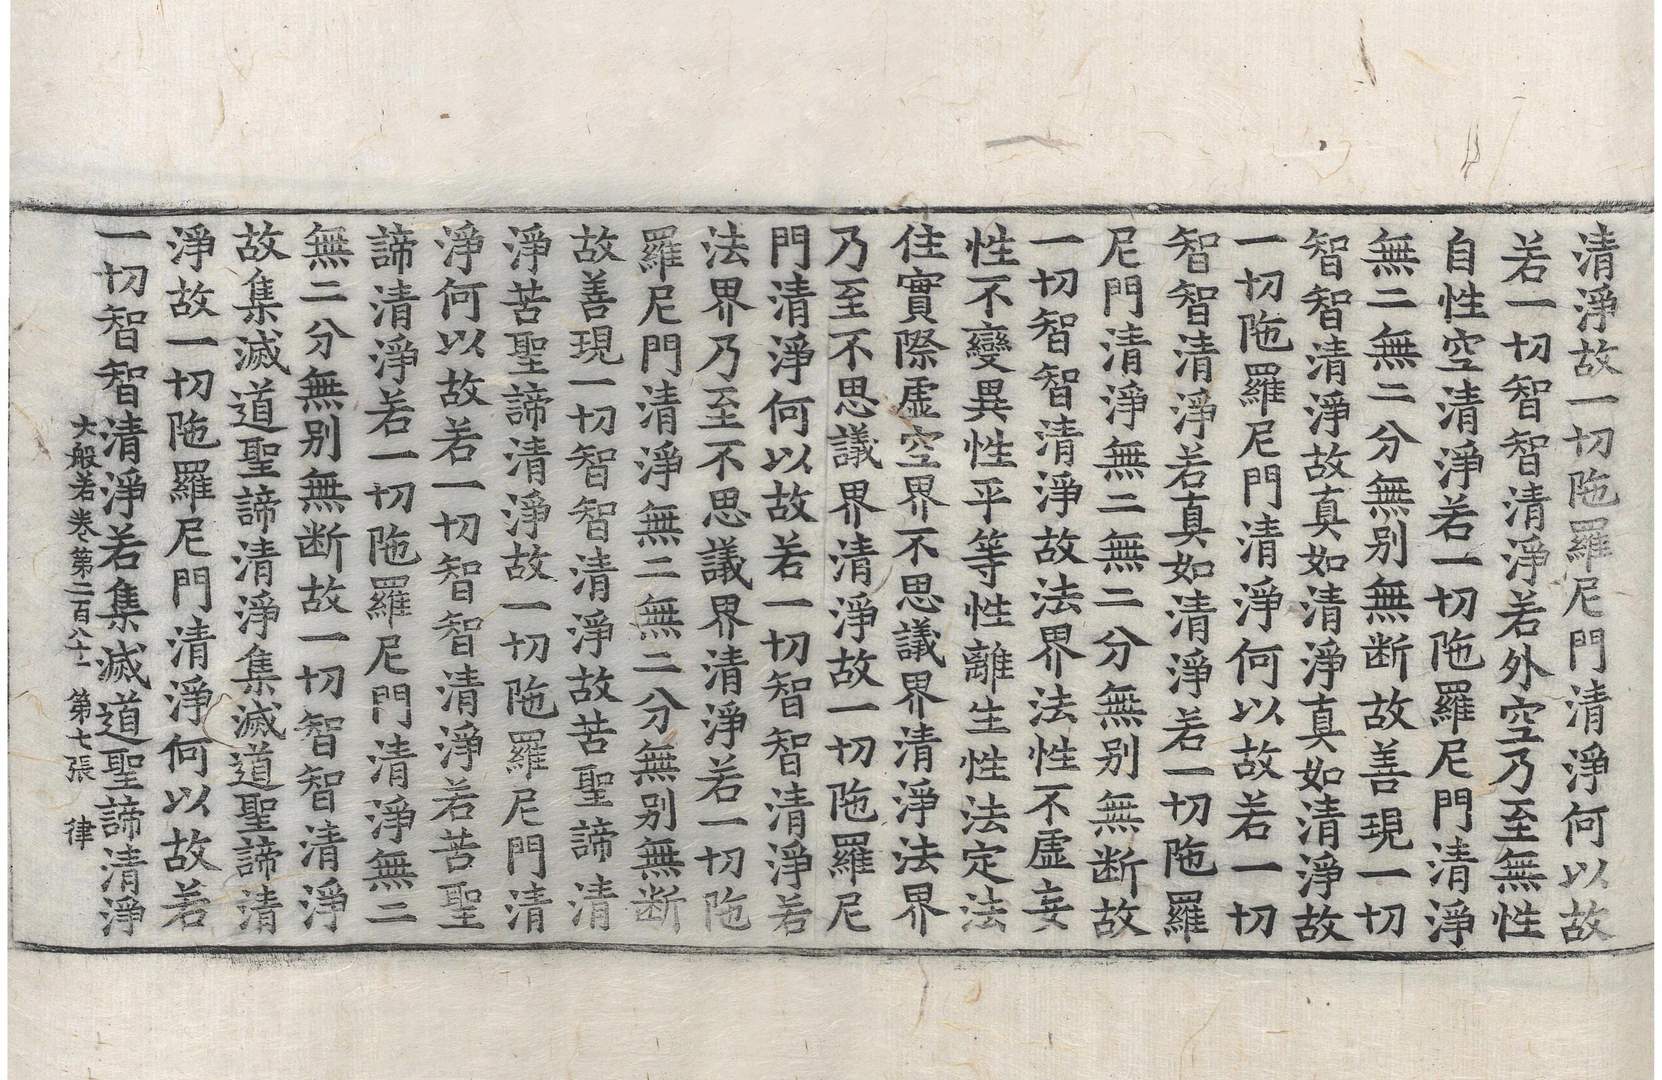 清淨故一切陁羅尼門清淨何以故
若一切智智清淨若外空乃至無性
自性空清淨若一切陁羅尼門清淨
無二無二分無別無断故善現一切
智智清淨故真如清淨真如清淨故
一切陁羅尼門清淨何以故若一切
智智清淨若真如清淨若一切陁羅
尼門清淨無二無二分無別無断故
一切智智清淨故法界法性不虛妄
性不變異性平等性離生性法定法
住實際虛空界不思議界清淨法界
乃至不思議界清淨故一切陁羅尼
門清淨何以故若一切智智清淨若
法界乃至不思議界清淨若一切陁
羅尼門清淨無二無二分無別無断
故善現一切智智清淨故苦聖諦清
淨苦聖諦清淨故一切陁羅尼門清
淨何以故若一切智智清淨若苦聖
諦清淨若一切陁羅尼門清淨無二
無二分無別無断故一切智智清淨
故集滅道聖諦清淨集滅道聖諦清
淨故一切陁羅尼門清淨何以故若
一切智智清淨若集滅道聖諦清淨
大般若卷第二百八十二 第七張 律